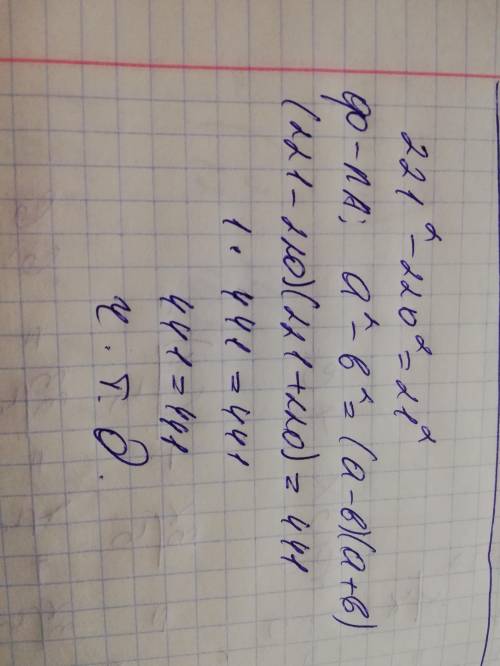 221² - 220² = 21²
до-ПА: a² - b² = (a-b)(a+b)
(221-220)(221+220) = 441
1 · 441 = 441
441 = 441
ч.т.д.